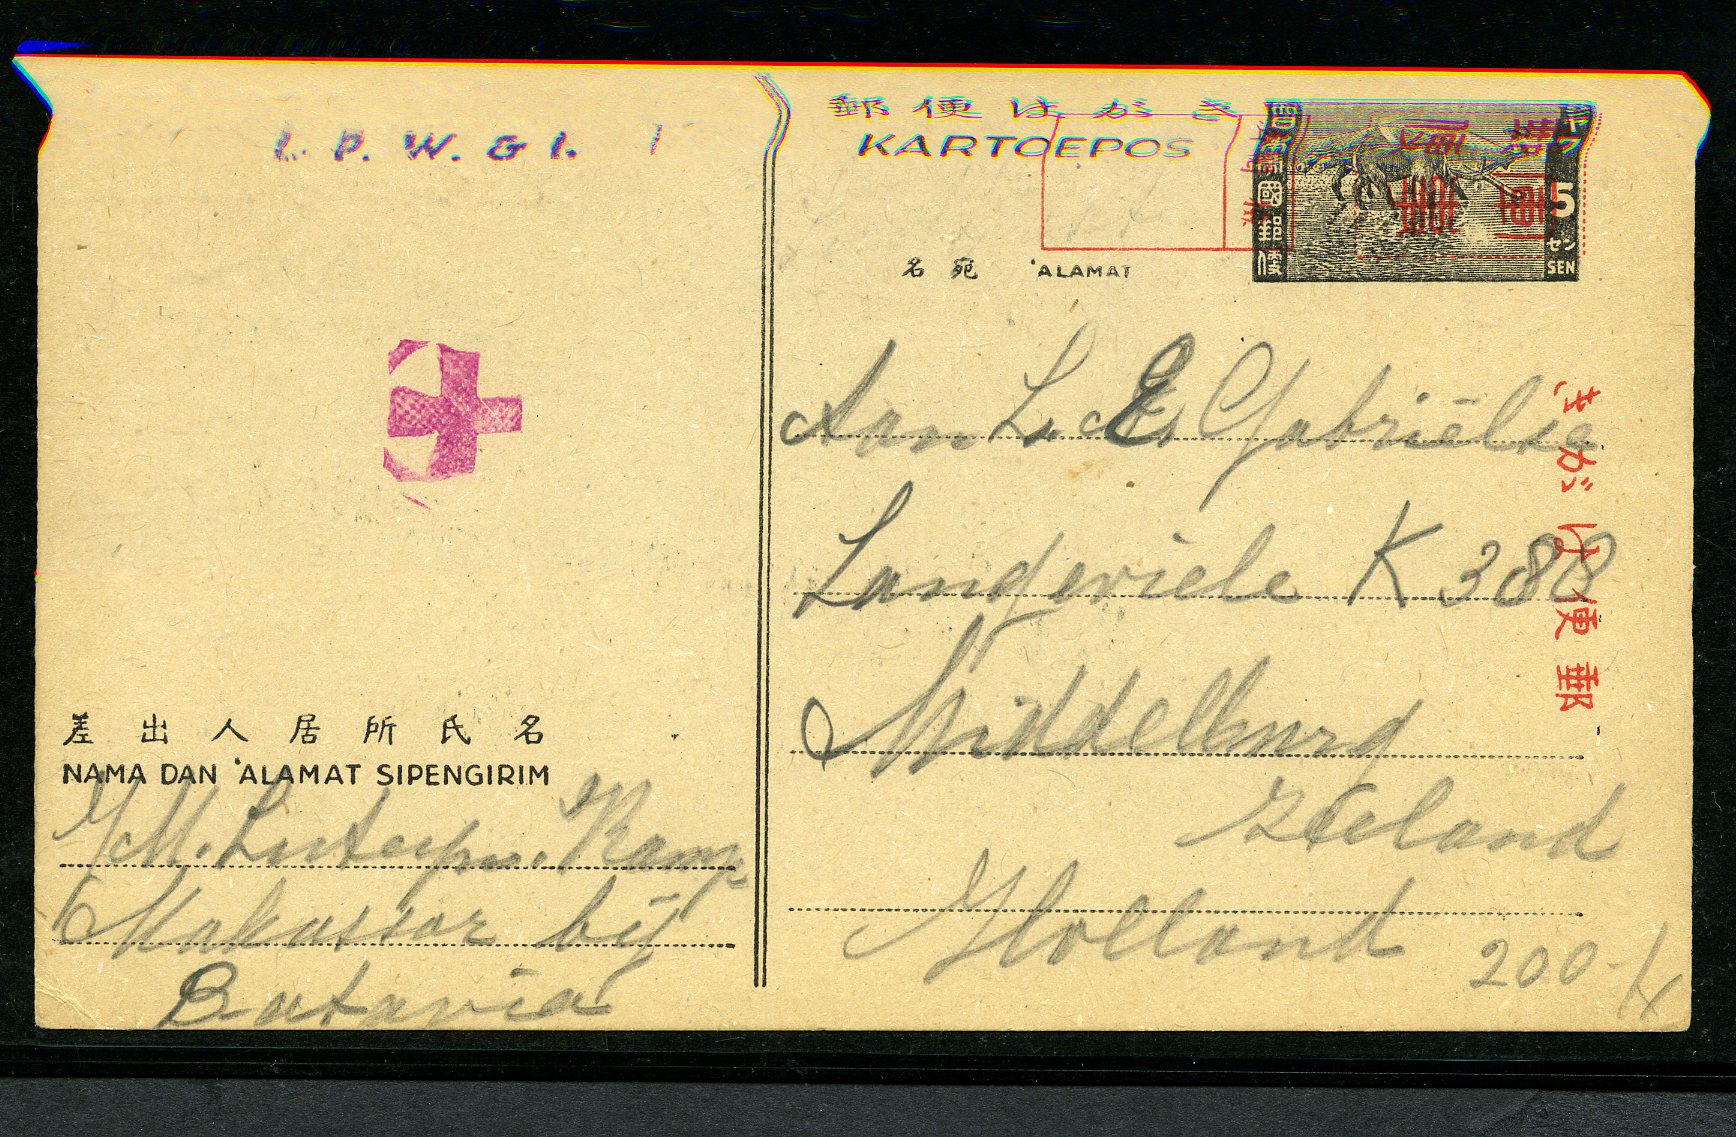 I. P. W. & I.
郵便はがき
KARTOEPOS
國郵便
5
セン
SEN
名宛 'ALAMAT
Aan L. E. Gabriëlse
Langeviele K 388
Middelburg
Zeeland
Holland
200-
郵便はがき
差出人居所氏名
NAMA DAN 'ALAMAT SIPENGIRIM
Kamp
Makassar bij
Batavia